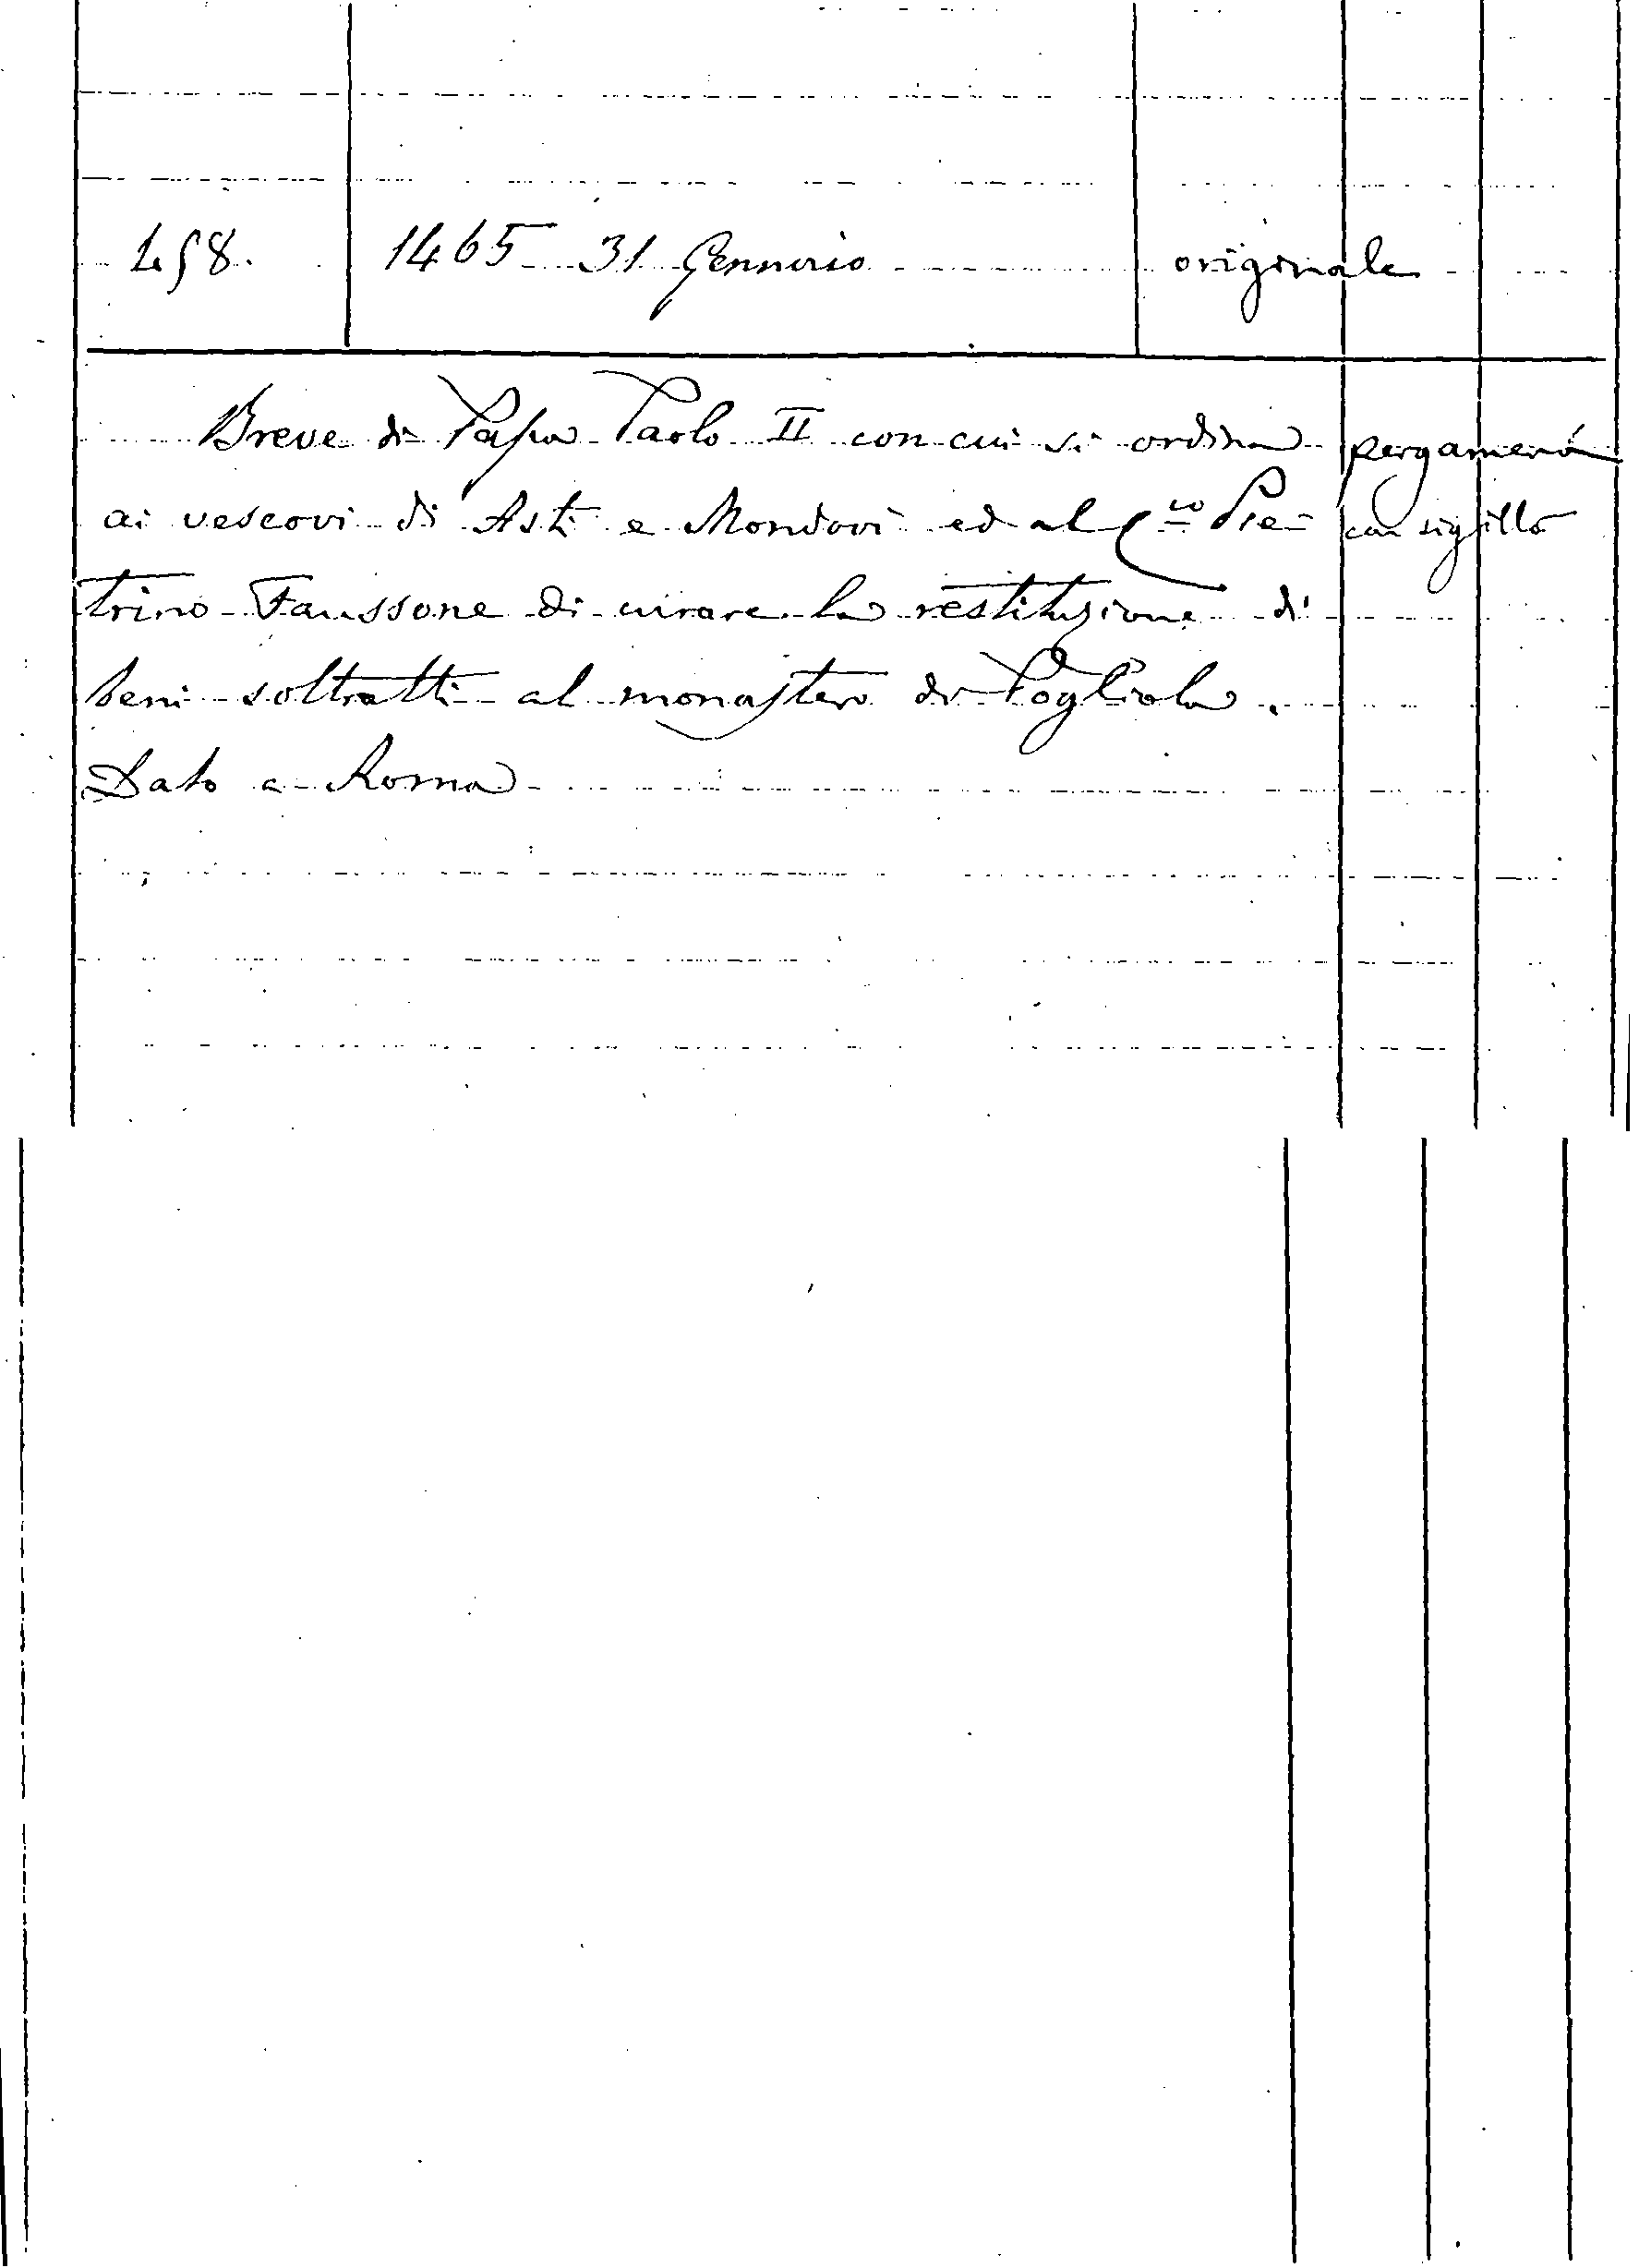 458. 1465 31 Gennaio originale
Breve di Papa Paolo II con cui si ordina pergamena
ai vescovi di Asti e Mondovì ed al C.co Pie- con sigillo
trino Faussone di curare la restituzione di
beni sottratti al monastero di Pogliola.
Dato a Roma